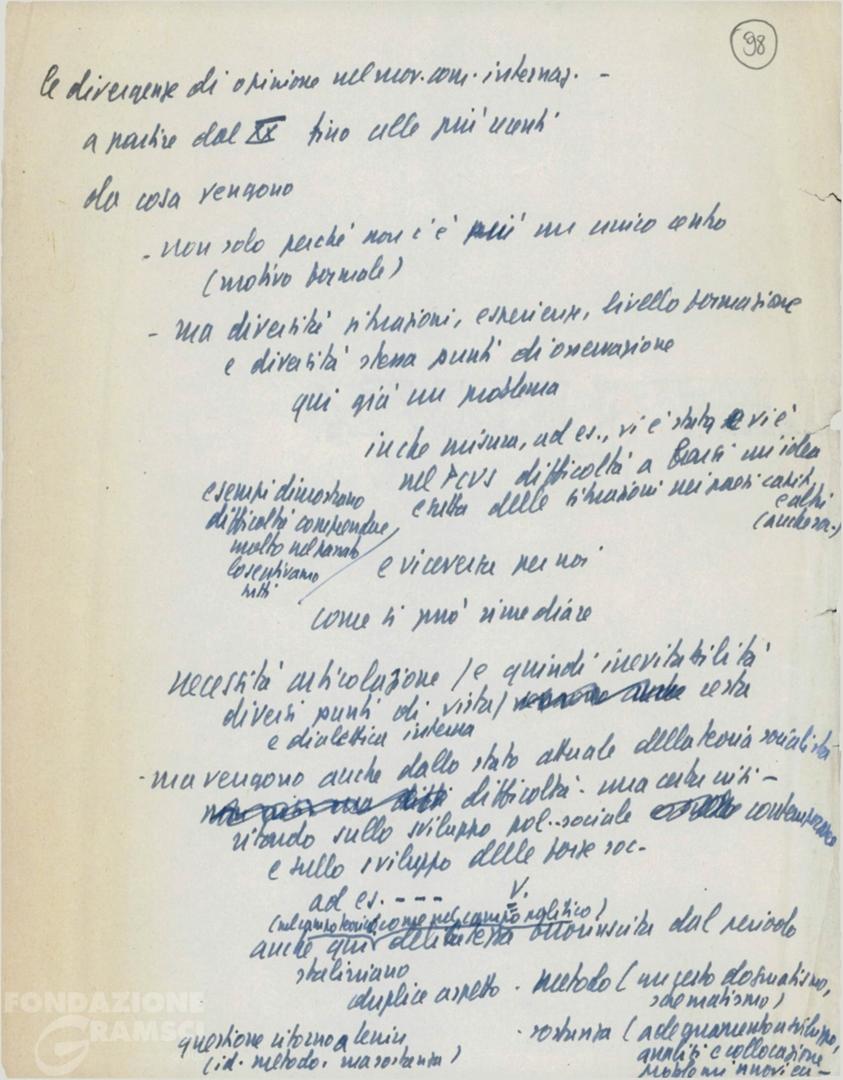 98
le divergenze di opinione nel mov. com. internaz. -
a partire dal XX fino alle più recenti
da cosa vengono
- non solo perché non c'è più un unico centro
(motivo formale)
- ma diversità situazioni, esperienze, livello formazione
e diversità stessa punti di osservazione
qui già un problema
in che misura, ad es., vi è stata e vi è
nel PCUS difficoltà a farsi un'idea
esatta delle situazioni nei paesi capit.
e altri
(anche soc.)
esempi dimostrano
difficoltà comprendere
molto nel passato
lo sentivamo
tutti
e viceversa per noi
come si può rimediare
necessità articolazione / e quindi inevitabilità
diversi punti di vista / certa
e dialettica interna
- ma vengono anche dallo stato attuale della teoria socialista
difficoltà - una certa crisi -
ritardo sullo sviluppo pol.-sociale contemporaneo
e sullo sviluppo delle forze soc-
ad es. - - - V.
(nel campo teorico come nel campo politico)
anche qui debolezza dal periodo
staliniano
duplice aspetto - metodo (un certo dogmatismo,
schematismo)
questione ritorno a Lenin
(id. metodo. ma sostanza)
- sostanza (adeguamento a sviluppi,
analisi e collocazione
problemi nuovi
FONDAZIONE
GRAMSCI